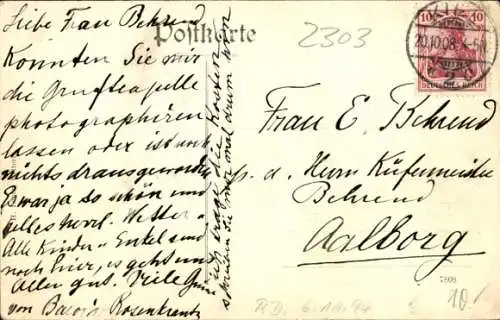 Postkarte
2303
10 10
20.10.08. 4-5N
DEUTSCHES REICH
Liebe Frau Behrend
Könnten Sie mir
die Gruftcapelle
photographieren
lassen oder ist
nichts draus geworden
Es war ja so schön und
helles Wetter
Alle Kinder u Enkel sind
noch hier, es geht uns
Allen gut. Viele Grüsse
von Rosenkrantz
ich trage die Kosten
schreiben Sie mir mal drum
Frau E. Behrend
p. a. Herrn Küfermeister
Behrend
Aalborg
7808
10